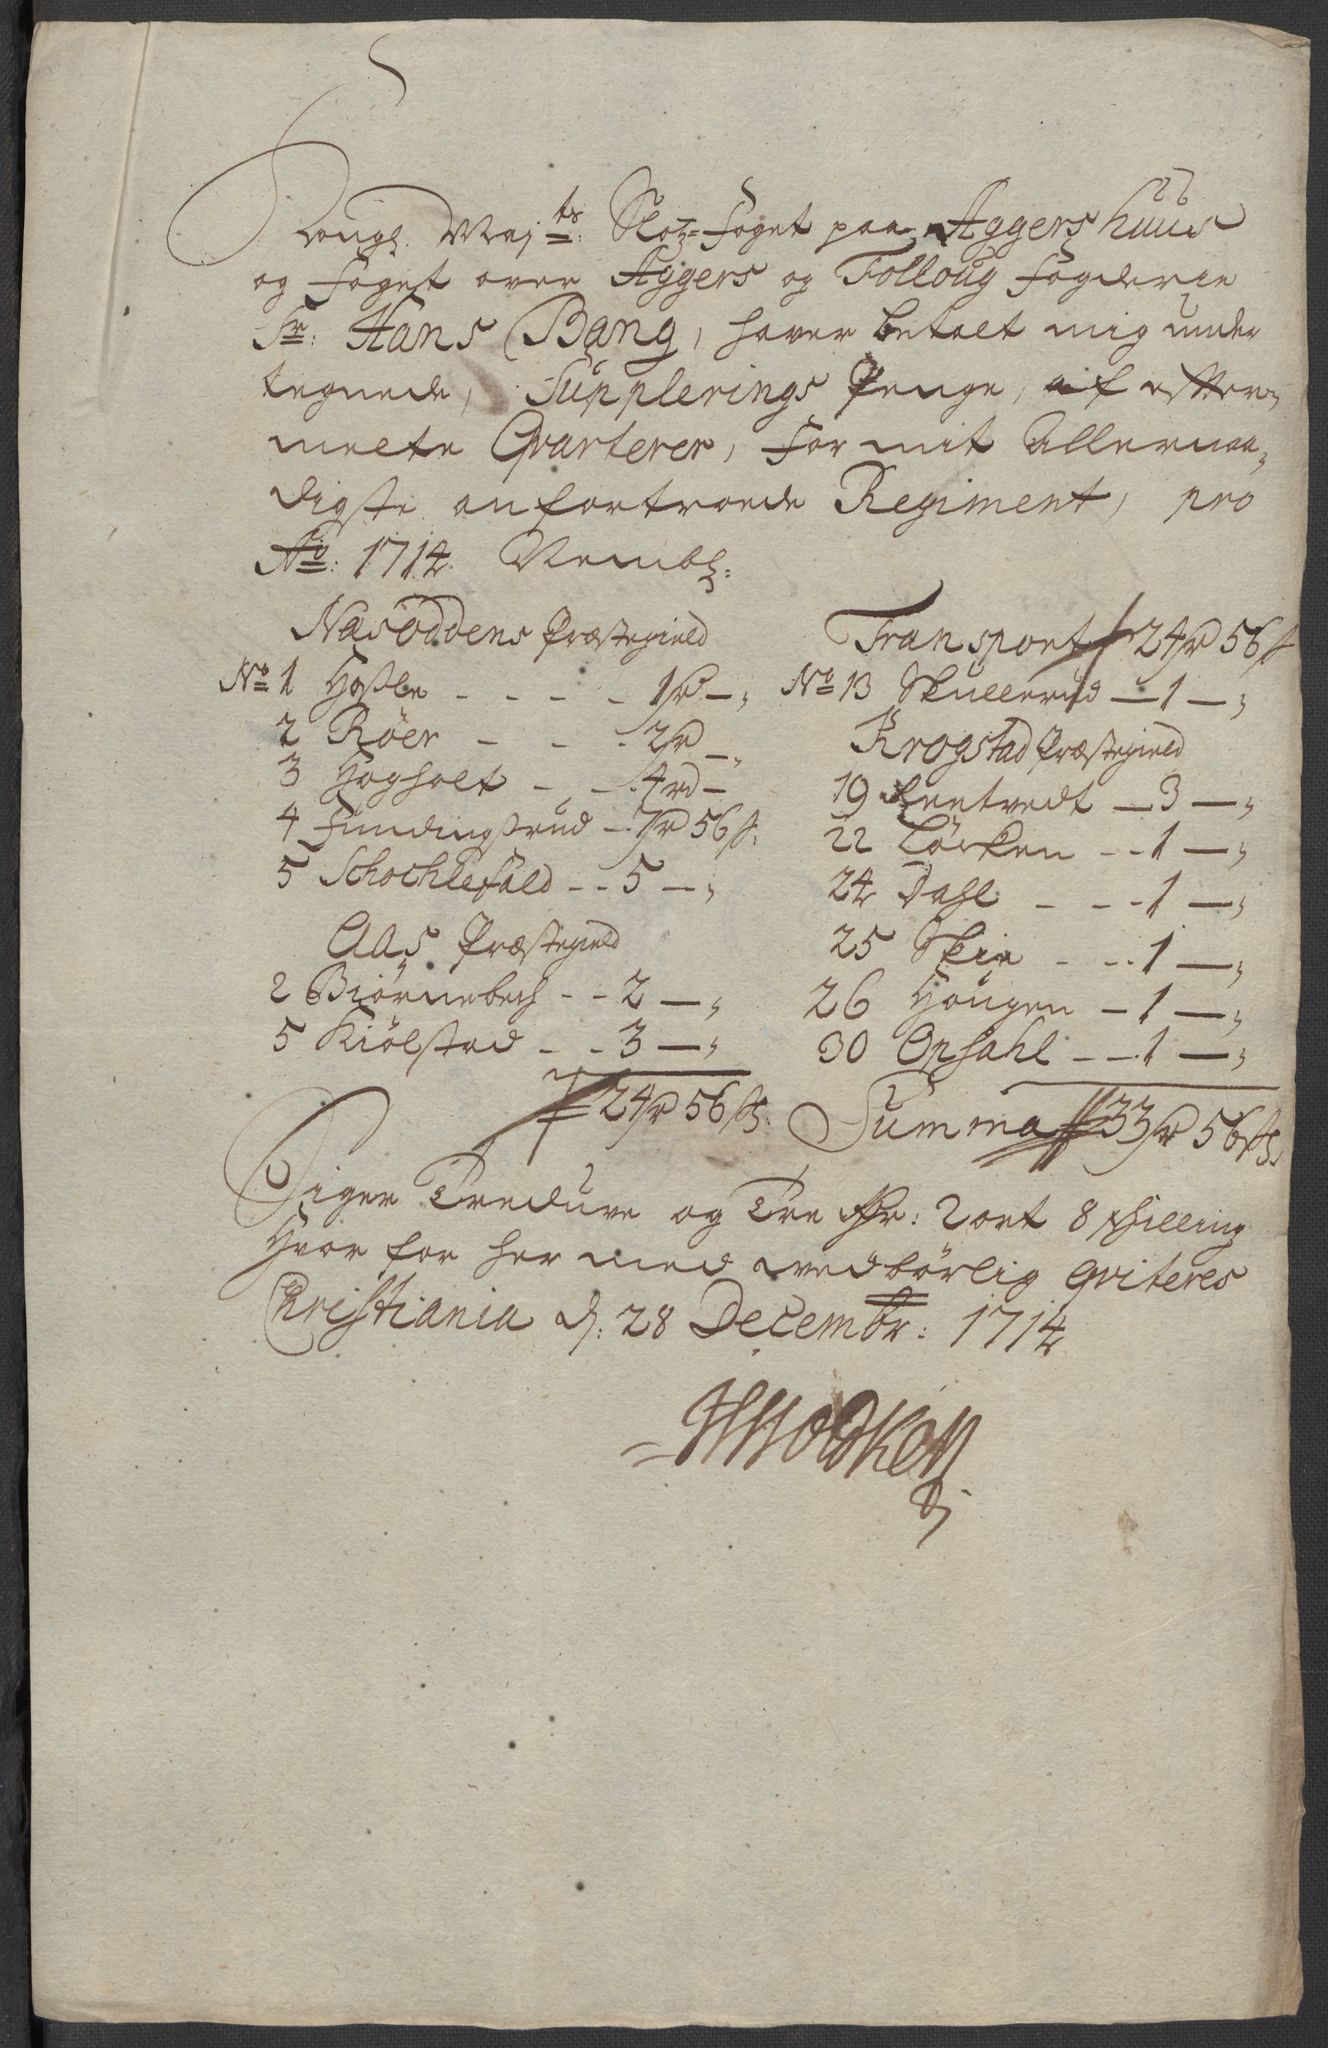 Kongl. Maj:ts Slotz-Foget paa Aggershuus
og Foget over Aggers og Folloug Fogderie
Sr: Hans Bang, haver betalt mig under
tegnede, Supplerings Penge, af effter-
melte Qvarterer, for mit Allernaa-
digste anfortroede Regiment, pro
Ao: 1714. Nembl:
Nasoddens Præstegield
No 1 Hasle - - - - 1 Rd — „
2 Röer - - - 2 Rd —„
3 Hogholt - - 4 rd —
4 Fundingsrud - 7 Rd 56 ß.
5 Schochlefald - - 5 — „
Aas Præstegield
2 Biörnebech - - 2 — „
5 Kiölstad - - 3 — „
24 Rd 56 ß.
Transport 24 Rd 56 ß
No 13 Skullerud — 1 — „
Krogstad Præstegield
19 Leentvedt — 3 — „
22 Löcken - - 1 — „
24 Dahl - - - 1 — „
25 Skie - - - 1 — „
26 Hougen — 1 — „
30 Opsahl - - 1 — „
Summa 33 Rd 56 ß.
Siger Tredive og Tre Rdr: 2 ort 8 skilling
Hvor for her med vedbörlig qviteres
Christiania d: 28 Decembr: 1714